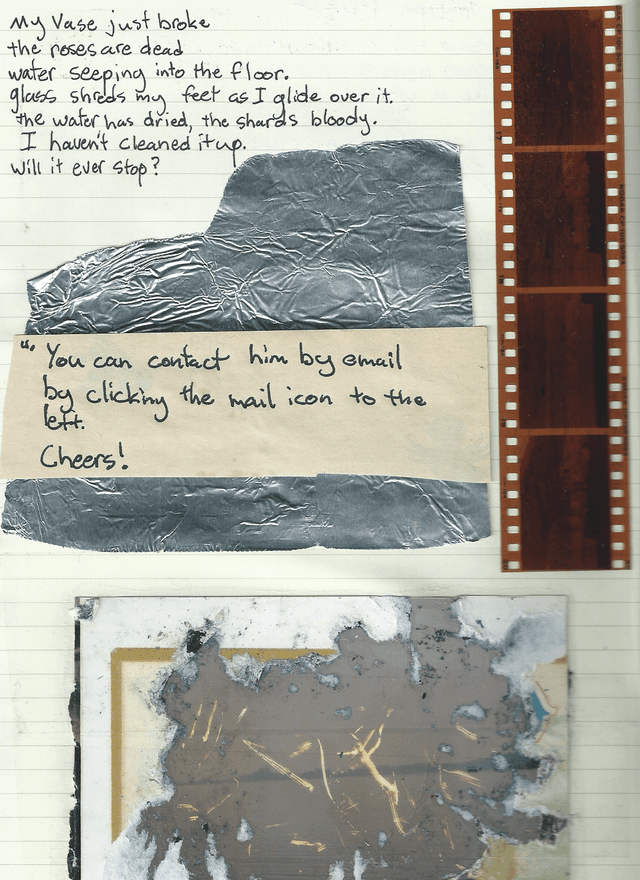 My Vase just broke
the roses are dead
water seeping into the floor.
glass shreds my feet as I glide over it.
the water has dried, the shards bloody.
I haven't cleaned it up.
will it ever stop?
". You can contact him by email
by clicking the mail icon to the
left.
Cheers!